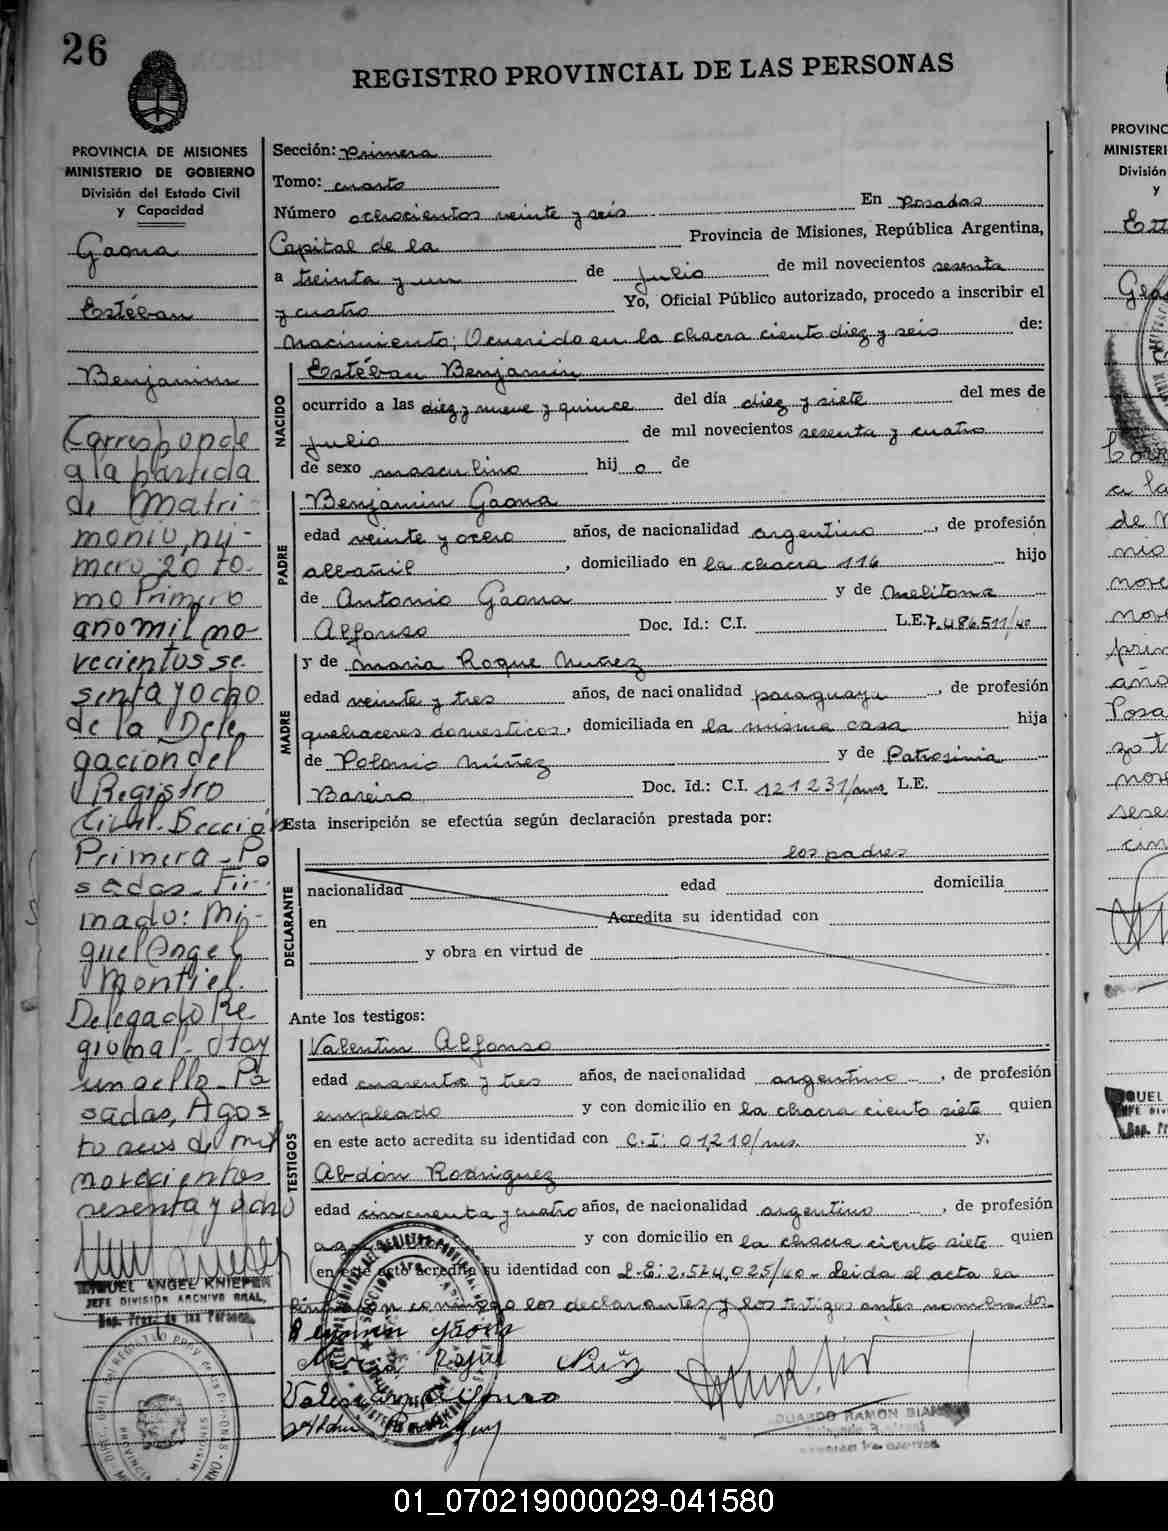 26
REGISTRO PROVINCIAL DE LAS PERSONAS
PROVINCIA DE MISIONES
MINISTERIO DE GOBIERNO
División del Estado Civil
y Capacidad
Gaona
Estéban
Benjamin
Corresponde
a la partida
de Matri-
monio, nú-
mero 20 to-
mo Primero
año mil no
vecientos se-
senta y ocho
de la Dele
gación del
Registro
Civil. Sección
Primera - Po
sadas - Fir-
mado: Mi-
guel Angel
Montiel.
Delegado Re
gional - Hay
un sello - Po
sadas, Agos
to seis de mil
novecientos
sesenta y ocho
MIGUEL ANGEL KNIEPER
JEFE DIVISION ARCHIVO GRAL.
Rep. Prov. de las Personas
Sección: Primera
Tomo: cuarto
Número ochocientos veinte y seis En Posadas
Capital de la Provincia de Misiones, República Argentina,
a treinta y un de Julio de mil novecientos sesenta
y cuatro Yo, Oficial Público autorizado, procedo a inscribir el
Nacimiento; Ocurrido en la chacra ciento diez y seis de:
NACIDO
Estéban Benjamin
ocurrido a las diez y nueve y quince del día diez y siete del mes de
Julio de mil novecientos sesenta y cuatro
de sexo masculino hij o de
PADRE
Benjamin Gaona
edad veinte y ocho años, de nacionalidad argentino, de profesión
albañil, domiciliado en la chacra 116 hijo
de Antonio Gaona y de Melitona
Alfonso Doc. Id.: C.I. L.E. 7.486.511/40
MADRE
y de Maria Roque Nuñez
edad veinte y tres años, de nacionalidad paraguaya, de profesión
quehaceres domesticos, domiciliada en la misma casa hija
de Polonio Núñez y de Patrosinia
Bareiro Doc. Id.: C.I. 121231/mns L.E.
Esta inscripción se efectúa según declaración prestada por:
DECLARANTE
los padres
nacionalidad edad domicilia
en Acredita su identidad con
y obra en virtud de
Ante los testigos:
TESTIGOS
Valentin Alfonso
edad cuarenta y tres años, de nacionalidad argentino, de profesión
empleado y con domicilio en la chacra ciento siete quien
en este acto acredita su identidad con C.I. 01210/mns. y,
Abdón Rodriguez
edad cincuenta y cuatro años, de nacionalidad argentino, de profesión
y con domicilio en la chacra ciento siete quien
en este acto acredita su identidad con L.E: 2.574,025/40 - Leida el acta la
firmaron conmigo los declarantes y los testigos antes nombrados.
Maria Roque Nuñz
Valentin Alfonso
RAMON
01_070219000029-041580